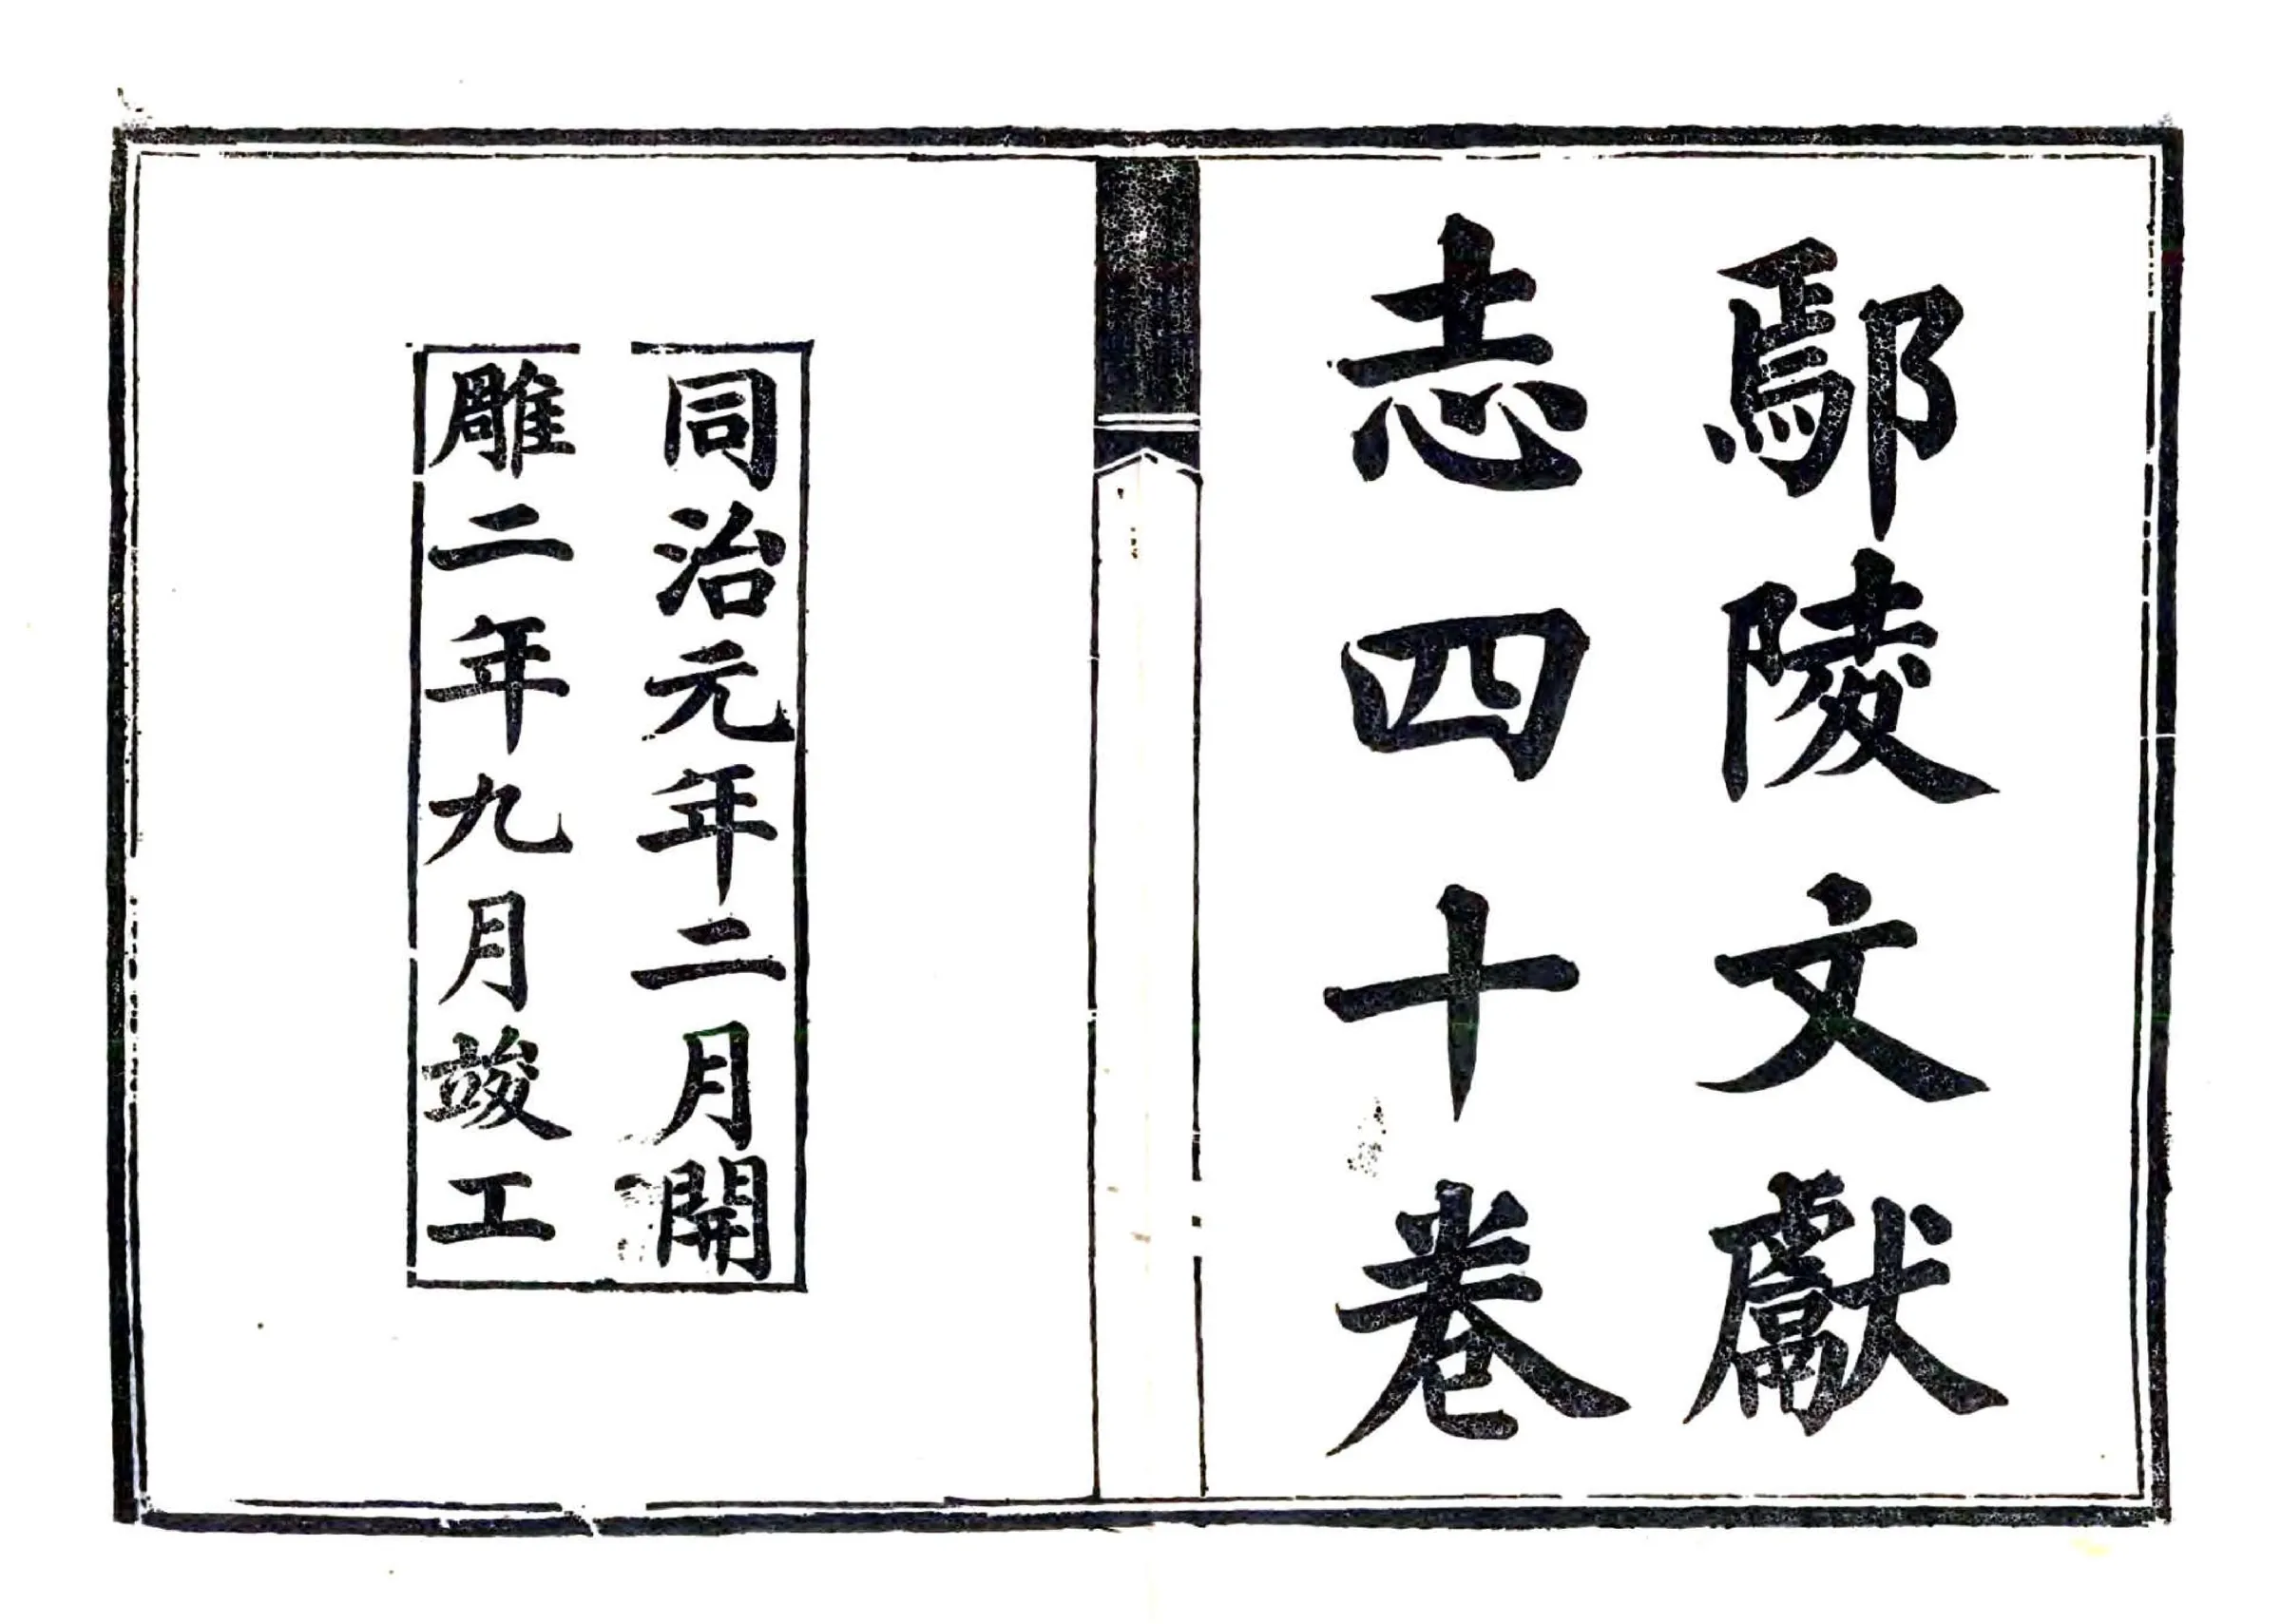 鄢陵文獻
志四十卷
同治元年二月開
雕二年九月竣工